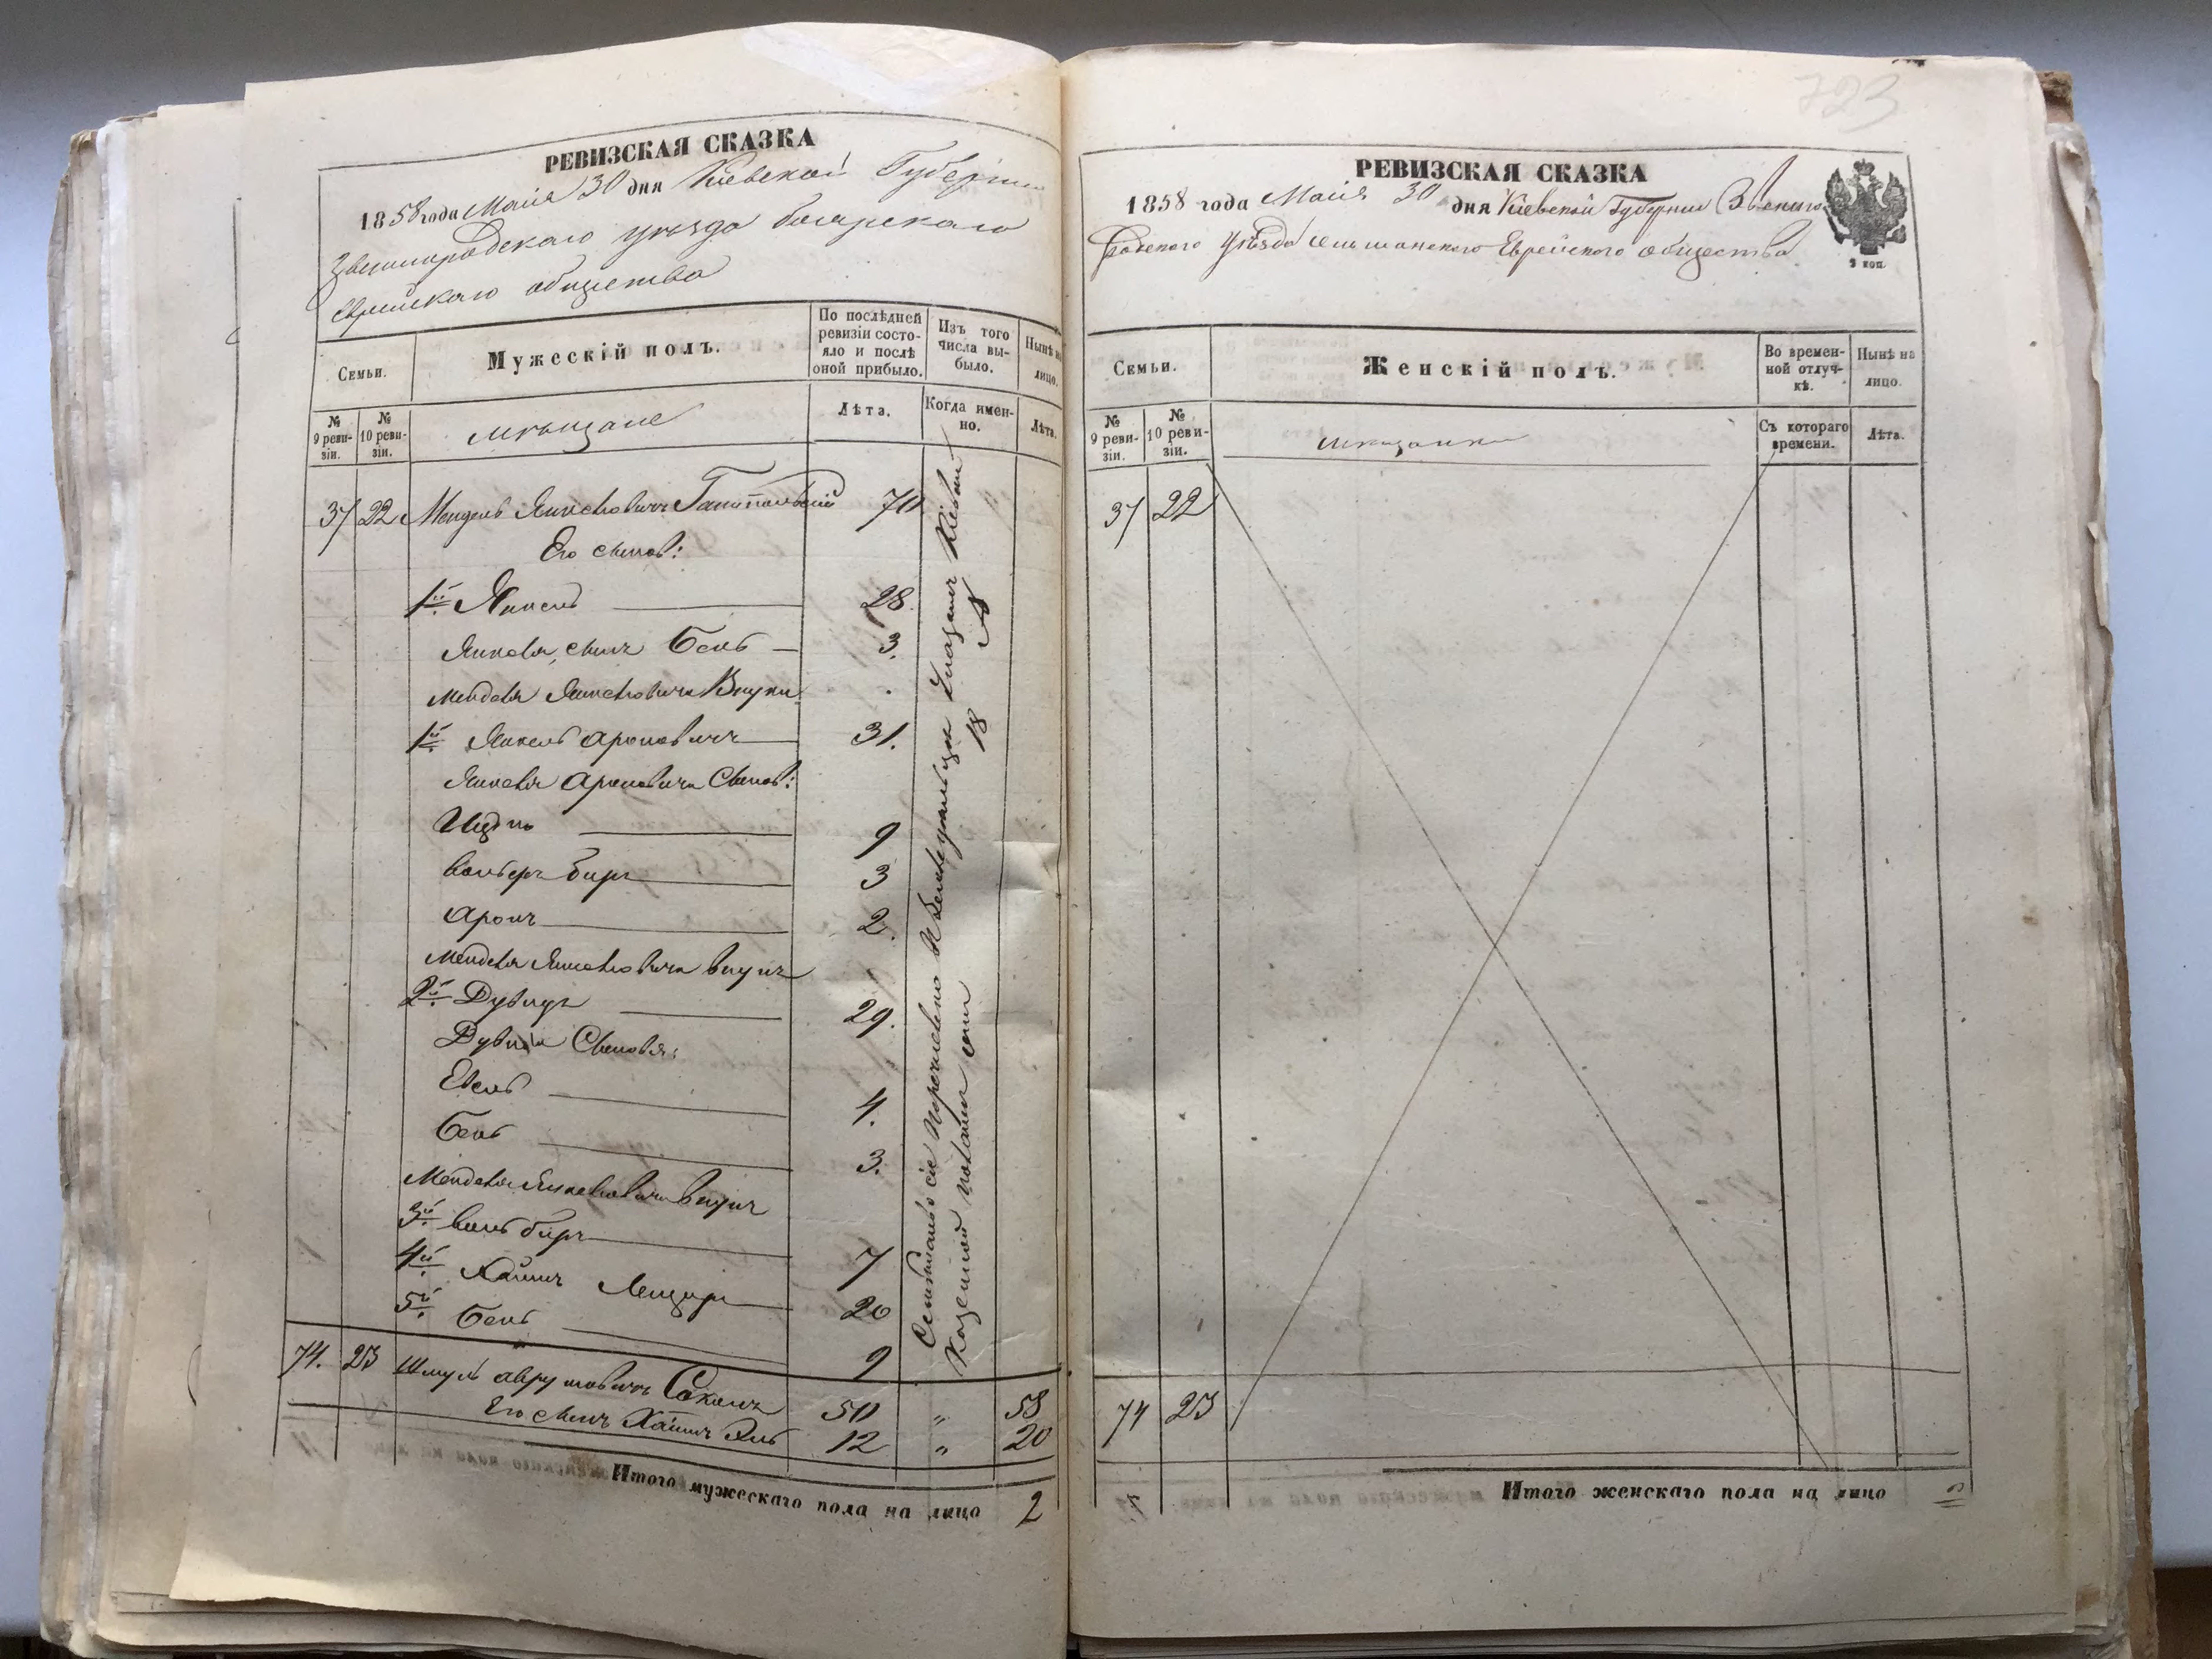 РЕВИЗСКАЯ СКАЗКА
1858 года Маія 30 дня Кіевской Губерніи
Звенигородскаго уѣзда боярскаго
Еврейскаго общества
Семьи.
Мужескій полъ.
По послѣдней ревизіи состояло и послѣ оной прибыло.
Изъ того числа выбыло.
Нынѣ на лицо.
№ 9 ревизіи.
№ 10 ревизіи.
мѣщане
Лѣта.
Когда именно.
Лѣта.
37 22 Мендель Янкелевичъ 70
Его сыновья:
1й Янкель 28
Янкеля сынъ Бень 3.
Менделя Янкелевича Внуки
1й Янкель Ароновичъ 31.
Янкеля Ароновича Сыновья:
Ицко 9
Вольберъ 3
Аронъ 2.
Менделя Янкелевича внукъ
2й Дувидъ 29.
Дувида Сыновья:
Евель 4.
Бень 3.
Менделя Янкелевича Внукъ
3й 7
4й Хаимъ Лейзоръ 20
5й Бень 9
Семейство сіе перечислено
Казенной Палаты
18
74. 23 Шмуль Аврумовичъ Соколъ 50 „ 58
Его сынъ Хаимъ 12 „ 20
Итого мужескаго пола на лицо 2
723
РЕВИЗСКАЯ СКАЗКА
1858 года Маія 30 дня Кіевской Губерніи Звениго
родского Уѣзда Еврейского общества
3 коп.
Семьи.
Женскій полъ.
Во временной отлучкѣ.
Нынѣ на лицо.
№ 9 ревизіи.
№ 10 ревизіи.
мѣщанки
Съ котораго времени.
Лѣта.
37 22
74 23
Итого женскаго пола на лицо